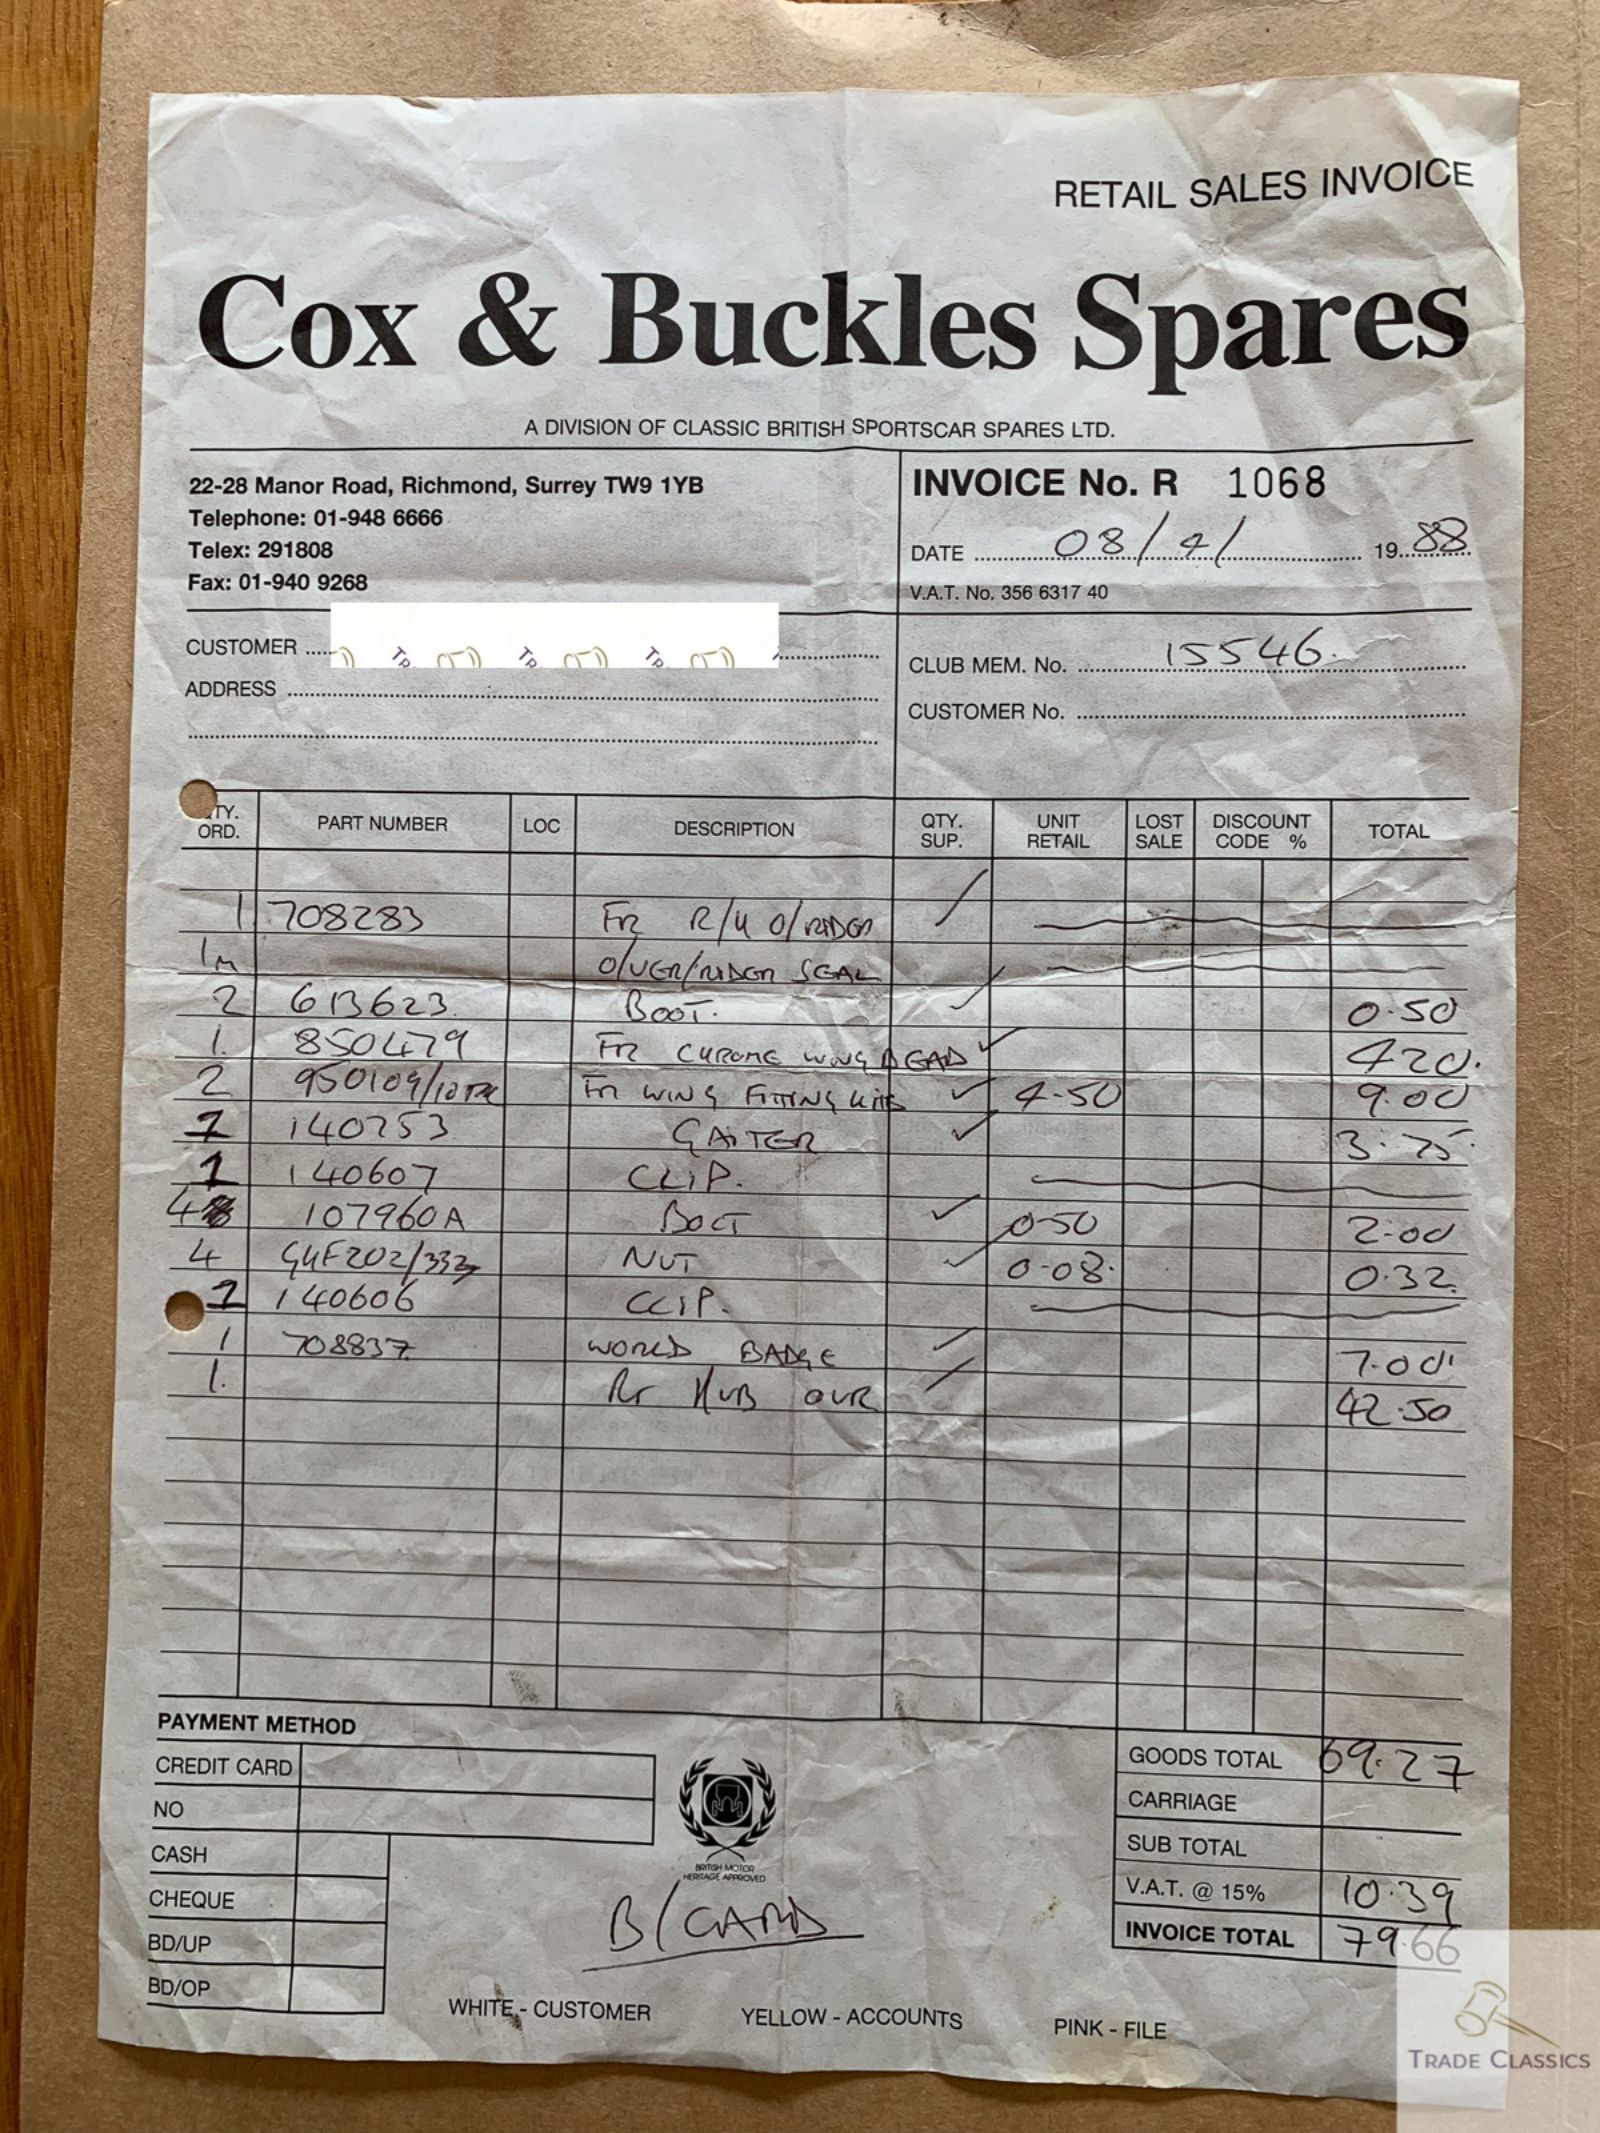 RETAIL SALES INVOICE
Cox & Buckles Spares
A DIVISION OF CLASSIC BRITISH SPORTSCAR SPARES LTD.
22-28 Manor Road, Richmond, Surrey TW9 1YB
Telephone: 01-948 6666
Telex: 291808
Fax: 01-940 9268
INVOICE No. R 1068
DATE 08/4/ 1988
V.A.T. No. 356 6317 40
CUSTOMER
ADDRESS
CLUB MEM. No. 15546.
CUSTOMER No.
QTY. ORD. PART NUMBER LOC DESCRIPTION QTY. SUP. UNIT RETAIL LOST SALE DISCOUNT CODE % TOTAL
1 708283 FR R/H O/RIDER
1m O/VER/RIDER SEAL
2 613623. BOOT. 0.50
1. 850479 FR CHROME WING BEAD 420.
2 950109/ FR WING FITTING KITS 4-50 9.00
1 140753 GAITER 3.75
1 140607 CLIP.
4 107960A BOLT 0-50 2.00
4 GHF202/ NUT 0.08. 0.32
1 140606 CLIP.
1 708837 WORLD BADGE 7.00
1. Rr HUB OUR 42.50
PAYMENT METHOD
CREDIT CARD
NO
CASH
CHEQUE
BD/UP
BD/OP
BRITISH MOTOR
HERITAGE APPROVED
B/CARD
GOODS TOTAL 69.27
CARRIAGE
SUB TOTAL
V.A.T. @ 15% 10.39
INVOICE TOTAL 79.66
WHITE - CUSTOMER YELLOW - ACCOUNTS PINK - FILE
TRADE CLASSICS